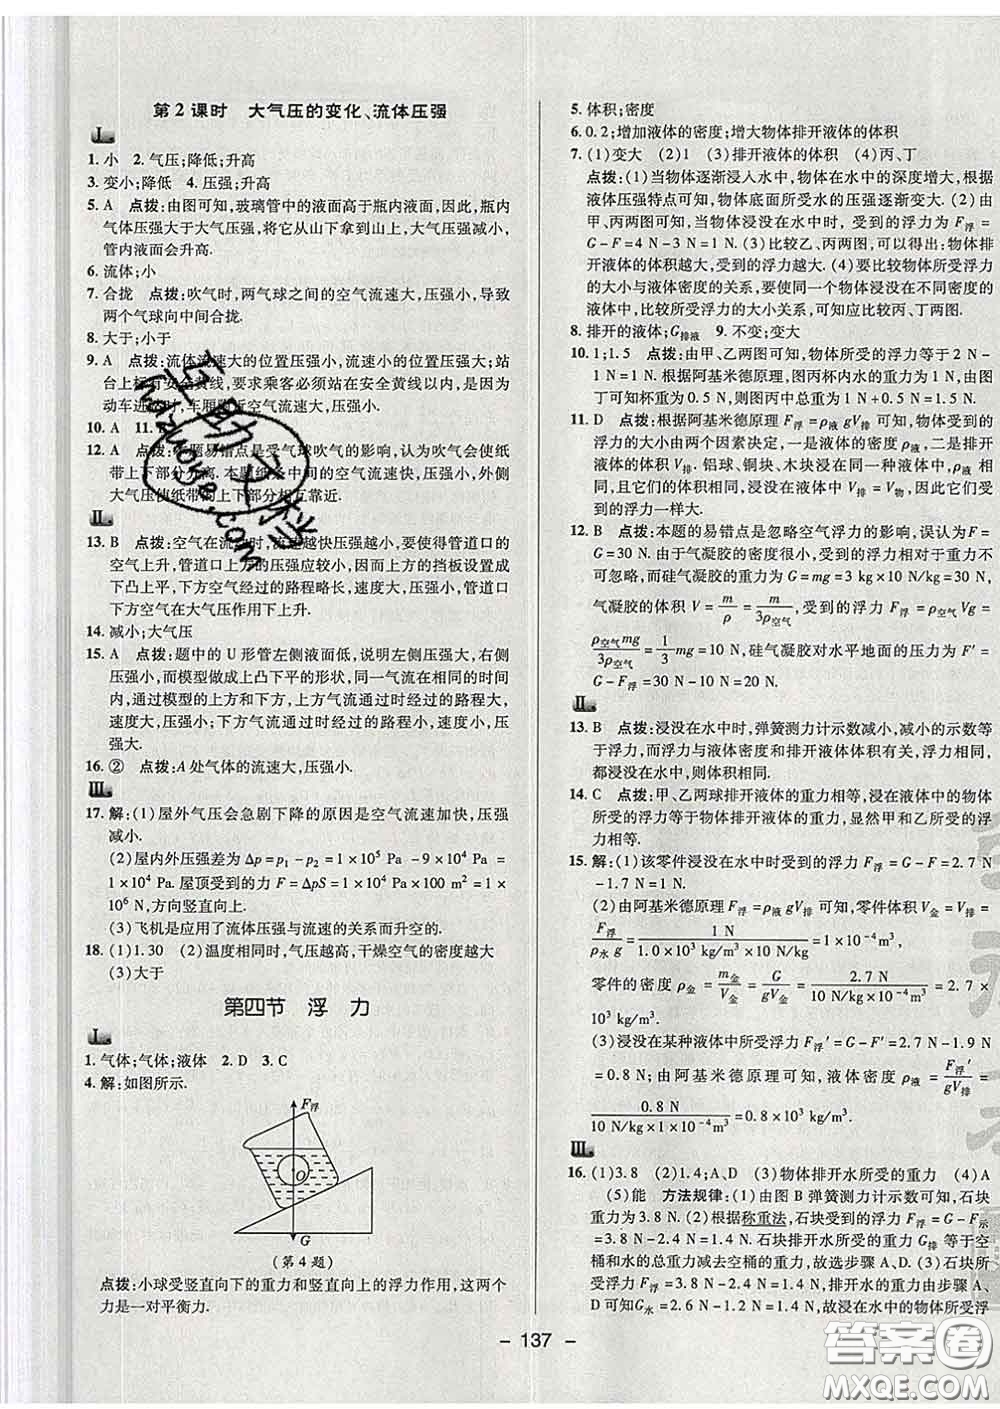 第2课时 大气压的变化、流体压强
Ⅰ
1. 小 2. 气压;降低;升高
3. 变小;降低 4. 压强;升高
5. A 点拨:由图可知,玻璃管中的液面高于瓶内液面,因此,瓶内
气体压强大于大气压强,将它从山下拿到山上,大气压强减小,
管内液面会升高.
6. 流体;小
7. 合拢 点拨:吹气时,两气球之间的空气流速大,压强小,导致
两个气球向中间合拢.
8. 大于;小于
9. A 点拨:流体流速大的位置压强小,流速小的位置压强大;站
台上标有安全黄线,要求乘客必须站在安全黄线以内,是因为
动车进站时,车厢附近空气流速大,压强小.
10. A 11.
12. A 点拨:本题易错点是受气球吹气的影响,认为吹气会使纸
带上下部分分离.本题纸条中间的空气流速快,压强小,外侧
大气压使纸带的上下部分相互靠近.
Ⅱ
13. B 点拨:空气在流动时,流速越快压强越小,要使得管道口的
空气上升,管道口上方的压强应较小,因此上方的挡板设置成
下凸上平,下方空气经过的路程略长,速度大,压强小,管道口
下方空气在大气压作用下上升.
14. 减小;大气压
15. A 点拨:题中的U形管左侧液面低,说明左侧压强大,右侧
压强小,而模型做成上凸下平的形状,同一气流通过模型时,
通过模型的上方和下方,上方气流通过时经过的路程大,
速度大,压强小,下方气流通过时经过的路程小,速度小,压
强大.
16. ② 点拨:A处气体的流速大,压强小.
Ⅲ
17. 解:(1)屋外气压会急剧下降的原因是空气流速加快,压强
减小.
(2)屋内外压强差为Δp=p₁-p₂=1×10⁵ Pa-9×10⁴ Pa=
1×10⁴ Pa. 屋顶受到的力F=ΔpS=1×10⁴ Pa×100 m²=1×
10⁶ N,方向竖直向上.
(3)飞机是应用了流体压强与流速的关系而升空的.
18. (1)1.30 (2)温度相同时,气压越高,干燥空气的密度越大
(3)大于
第四节 浮 力
Ⅰ
1. 气体;气体;液体 2. D 3. C
4. 解:如图所示.
F浮
O
G
(第4题)
点拨:小球受竖直向下的重力和竖直向上的浮力作用,这两个
力是一对平衡力.
5. 体积;密度
6. 0.2;增加液体的密度;增大物体排开液体的体积
7. (1)变大 (2)1 (3)排开液体的体积 (4)丙、丁
点拨:(1)当物体逐渐浸入水中,物体在水中的深度增大,根据
液体压强特点可知,物体底面所受水的压强逐渐变大. (2)由
甲、丙两图可知,当物体浸没在水中时,受到的浮力为F浮
=G-F=4 N-3 N=1 N. (3)比较乙、丙两图,可以得出:物体排
开液体的体积越大,受到的浮力越大. (4)要比较物体所受浮力
的大小与液体密度的关系,要使同一个物体浸没在不同密度的
液体中,比较所受浮力大小关系.可知应比较丙、丁两图.
8. 排开的液体;G排液 9. 不变;变大
10. 1;1.5 点拨:由甲、乙两图可知,物体所受的浮力等于2 N-
1 N=1 N.根据阿基米德原理,图丙杯内水的重力为1 N,由图
丁可知杯重为0.5 N,则图丙中总重为1 N+0.5 N=1.5 N.
11. D 点拨:根据阿基米德原理F浮=ρ液gV排可知,物体受到的
浮力的大小由两个因素决定,一是液体的密度ρ液,二是排开
液体的体积V排.铝球、铜块、木块浸没在同一种液体中,体积
相同,且它们受到的都是浸没在液体中V排=V物,因此它们受到
的浮力一样大.
12. B 点拨:本题的易错点是忽略空气浮力的影响,误认为F=
G=30 N.由于气凝胶的密度很小,受到的浮力相对于重力不
可忽略,而硅气凝胶的重力为G=mg=3 kg×10 N/kg=30 N,
气凝胶的体积V=m/ρ=m/3ρ空气,受到的浮力F浮=ρ空气Vg=
ρ空气mg/3ρ空气=1/3 mg=10 N,硅气凝胶对水平地面的压力为F'=
G-F浮=30 N-10 N=20 N.
Ⅱ
13. B 点拨:浸没在水中时,弹簧测力计示数减小,减小的示数等
于浮力,而浮力与液体密度和排开液体体积有关,浮力相同,
都浸没在水中,则体积相同.
14. C 点拨:甲、乙两球排开液体的重力相等,浸在液体中的物体
所受的浮力等于物体排开液体的重力,显然甲和乙所受的浮
力相等.
15. 解:(1)该零件浸没在水中时受到的浮力F浮=G-F=2.7 N
-1.7 N=1 N.
(2)由阿基米德原理F浮=ρ液gV排可知,零件体积V金=V排=
F浮/ρ水g=1 N/1.0×10³ kg/m³×10 N/kg=1×10⁻⁴ m³
零件的密度ρ金=m金/V金=G/gV金=2.7 N/10 N/kg×10⁻⁴ m³=2.7×
10³ kg/m³.
(3)浸没在某种液体中所受浮力F浮'=G-F'=2.7 N-1.9 N
=0.8 N;由阿基米德原理可知,液体密度ρ液=F浮'/gV排=
0.8 N/10 N/kg×1×10⁻⁴ m³=0.8×10³ kg/m³.
Ⅲ
16. (1)3.8 (2)1.4;A、D (3)物体排开水所受的重力 (4)A
(5)能 方法规律:(1)由图B弹簧测力计示数可知,石块
重力为3.8 N. (2)根据称重法,石块受到的浮力F浮=G-F示
=3.8 N-2.4 N=1.4 N.石块排开水所受的重力G排等于空
桶和水的总重力减去空桶的重力,故选步骤A、D. (3)石块所
受浮力F浮=3.8 N-2.4 N=1.4 N,排开水的重力由步骤A、
D可知G水=2.6 N-1.2 N=1.4 N,故浸在水中的物体所受浮
- 137 -
作业帮文档
zuoye.com
答案圈
MXQE.COM